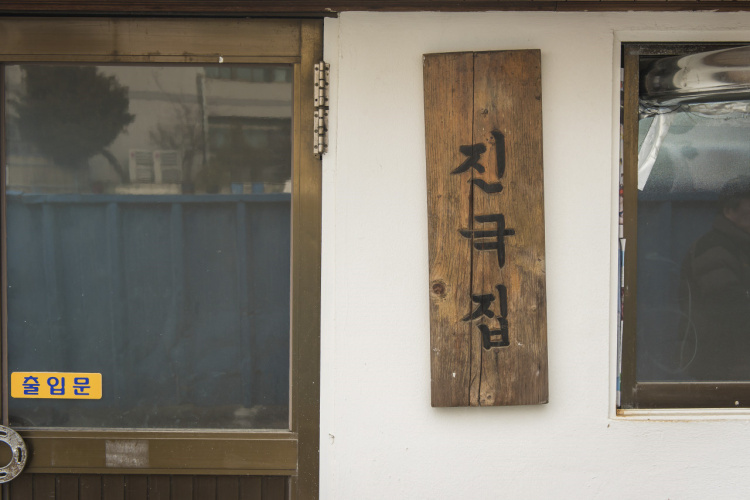 출입문
진국집